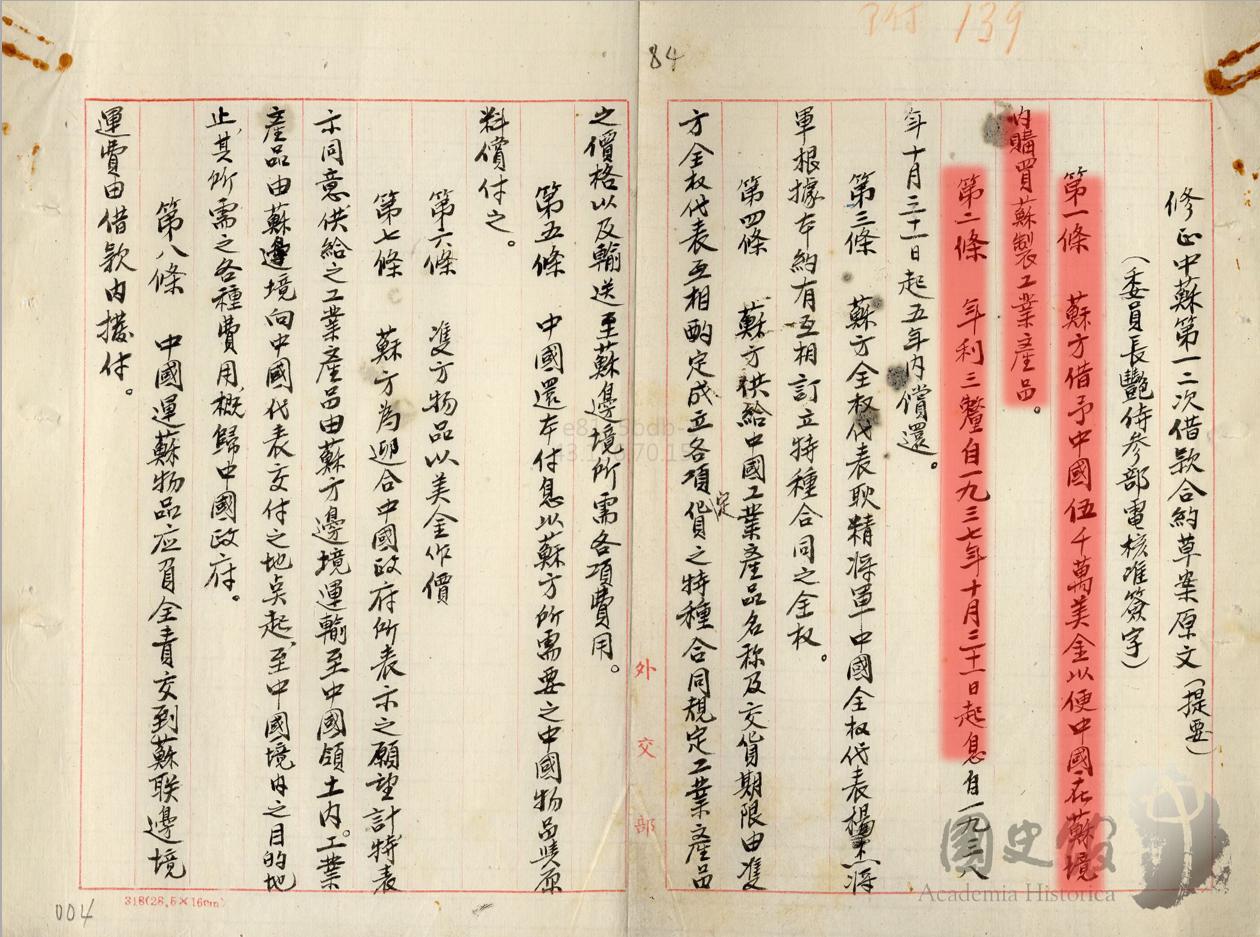 139
84
修正中蘇第一二次借款合約草案原文(提要)
(委員長艷侍參部電核准簽字)
第一條 蘇方借予中國伍千萬美金以便中國在蘇境
內購買蘇製工業產品。
第二條 年利三釐自一九三七年十月三十一日起息自一九三八
年十月三十一日起五年內償還。
第三條 蘇方全权代表耿精將軍中國全权代表楊杰將
軍根據本約有互相訂立特種合同之全权。
第四條 蘇方供給中國工業產品名称及交貨期限由雙
方全权代表互相酌定成立各項定貨之特種合同規定工業產品
之價格以及輸送至蘇邊境所需各項費用。
第五條 中國還本付息以蘇方所需要之中國物品與原
料償付之。
第六條 雙方物品以美金作價
第七條 蘇方為迎合中國政府所表示之願望計特表
示同意供給之工業產品由蘇方邊境運輸至中國領土內。工業
產品由蘇邊境向中國代表交付之地點起,至中國境內之目的地
止,其所需之各種費用,概歸中國政府。
第八條 中國運蘇物品应負全責交到蘇联邊境
運費由借款內撥付。
外交部
國史館
Academia Historica
004
318(28.5×16cm)